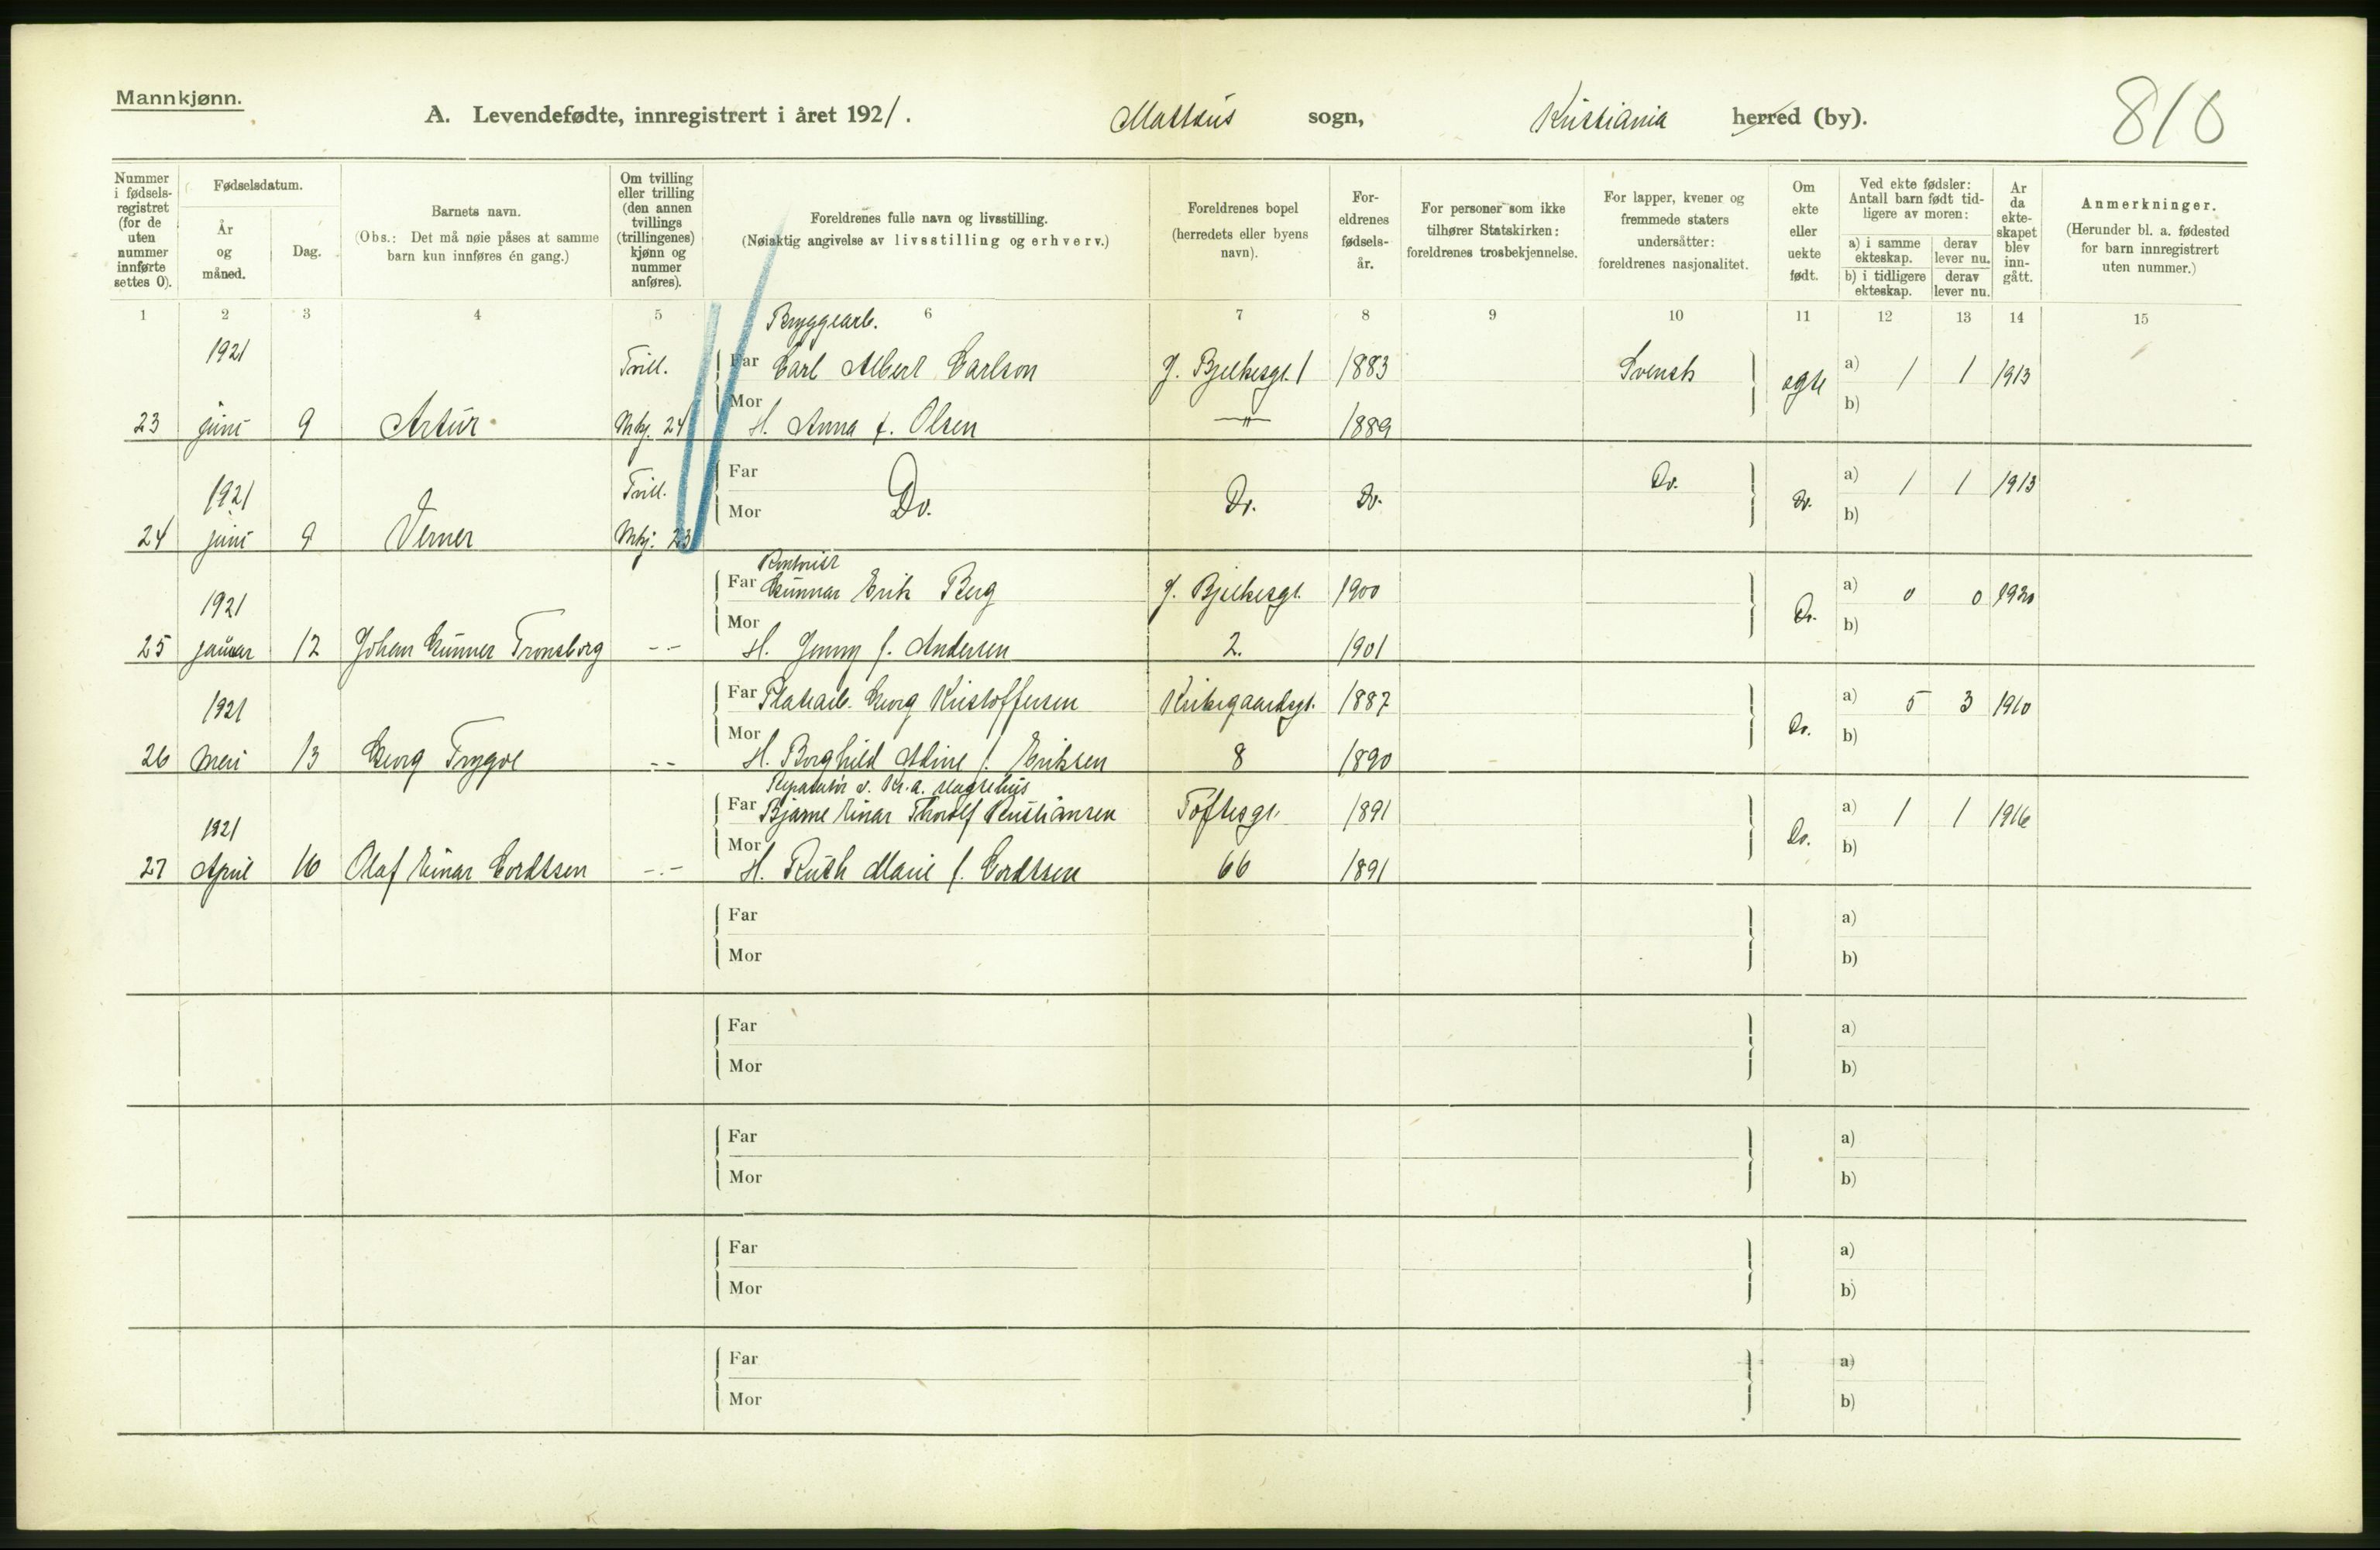 Mannkjønn.
A. Levendefødte, innregistrert i året 1921. Mattæus sogn, Kristiania herred (by).
810
Nummer i fødsels-registret (for de uten nummer innførte settes 0).
Fødselsdatum.
År og måned.
Dag.
Barnets navn.
(Obs.: Det må nøie påses at samme barn kun innføres én gang.)
Om tvilling eller trilling (den annen tvillings (trillingenes) kjønn og nummer anføres).
Foreldrenes fulle navn og livsstilling.
(Nøiaktig angivelse av livsstilling og erhverv.)
Foreldrenes bopel (herredets eller byens navn).
For-eldrenes fødsels-år.
For personer som ikke tilhører Statskirken: foreldrenes trosbekjennelse.
For lapper, kvener og fremmede staters undersåtter: foreldrenes nasjonalitet.
Om ekte eller uekte født.
Ved ekte fødsler: Antall barn født tid-ligere av moren:
a) i samme ekteskap.
derav lever nu.
b) i tidligere ekteskap.
derav lever nu.
Ar da ekte-skapet blev inn-gått.
Anmerkninger.
(Herunder bl. a. fødested for barn innregistrert uten nummer.)
1 2 3 4 5 6 7 8 9 10 11 12 13 14 15
Bryggearb.
1921 Tvill. Far Carl Albert Carlson J. Bjelkesgt. 1 1883 Svensk ægte a) 1 1 1913
23 juni 9 Artur Mkj. 24 Mor H. Anna f. Olsen —"— 1889 b)
1921 Tvill. Far Do. Do. Do. Do. Do. a) 1 1 1913
24 juni 9 Verner Mkj. 23 Mor b)
Kontorist
1921 Far Gunnar Erik Berg J. Bjelkesgt. 1900 Do. a) 0 0 1920
25 januar 12 Johan Gunner Tronsborg -·- Mor H. Jenny f. Andersen 2. 1901 b)
1921 Far Platearb. Georg Kristoffersen Kirkegaardsgt. 1887 Do. a) 5 3 1910
26 Mai 13 Georg Trygve -·- Mor H. Borghild Adine f. Eriksen 8 1890 b)
Reparatør v. Kr.a.
1921 Far Bjarne Einar Thorolf Kristiansen Toftesgt. 1891 Do. a) 1 1 1916
27 April 16 Olaf Einar Cordtsen -·- Mor H. Ruth Marie f. Cordtsen 66 1891 b)
Far a)
Mor b)
Far a)
Mor b)
Far a)
Mor b)
Far a)
Mor b)
Far a)
Mor b)